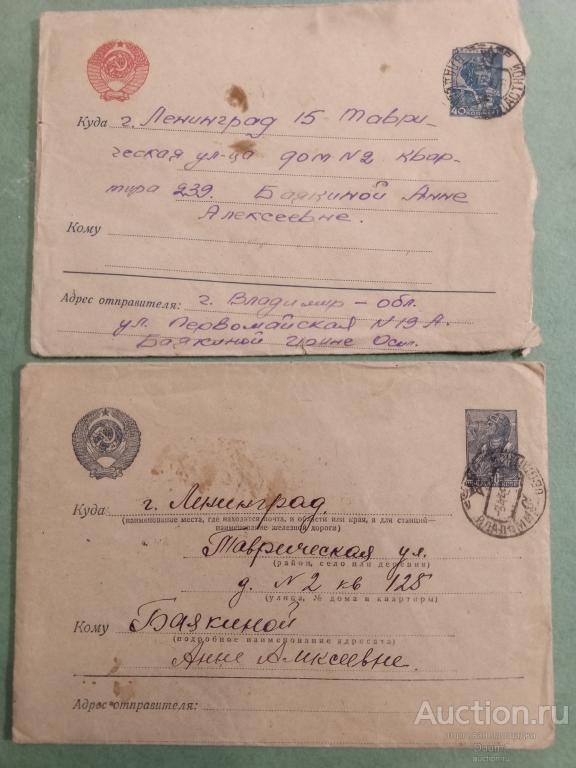 40
Куда г. Ленинград 15 Таври-
ческая ул-ца дом N2 квар-
тира 239. Баякиной Анне
Алексеевне.
Кому
Адрес отправителя: г. Владимир – обл.
ул. Первомайская N 19 А.
Баякиной Ирине Осип.
Куда г. Ленинград.
(наименование места, где находится почта, и области или края, а для станций—
наименование железной дороги)
Таврическая ул.
(район, село или деревня)
д. N2 кв 128
(улица, № дома и квартиры)
Кому Баякиной
(подробное наименование адресата)
Анне Алексеевне.
Адрес отправителя:
Auction.ru
торговая площадка
auction.ru